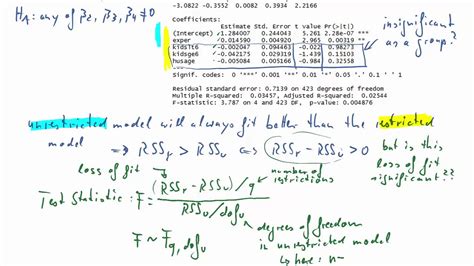 H_A: any of β2, β3, β4 ≠ 0
-3.0822 -0.3552 0.0082 0.3934 2.2166
Coefficients:
Estimate Std. Error t value Pr(>|t|)
(Intercept) 1.284007 0.244043 5.261 2.28e-07 ***
exper -0.014590 0.004920 2.965 0.00319 **
kidslt6 -0.002047 0.094463 -0.022 0.98273
kidsge6 -0.042175 0.029311 -1.439 0.15103
husage -0.005086 0.005166 -0.984 0.32558
---
Signif. codes: 0 '***' 0.001 '**' 0.01 '*' 0.05 '.' 0.1 ' ' 1
Residual standard error: 0.7139 on 423 degrees of freedom
Multiple R-squared: 0.03457, Adjusted R-squared: 0.02544
F-statistic: 3.787 on 4 and 423 DF, p-value: 0.004876
insignificant
as a group?
unrestricted model will always fit better than the restricted
model
⇒ RSS_r > RSS_u ⇔ RSS_r - RSS_u > 0
but is this
loss of fit
significant??
loss of fit
number of
restrictions
Test Statistic: F = (RSS_r - RSS_u)/q
RSS_u/dof_u
degrees of freedom
in unrestricted model
F ~ F_q,dof_u
here: n-